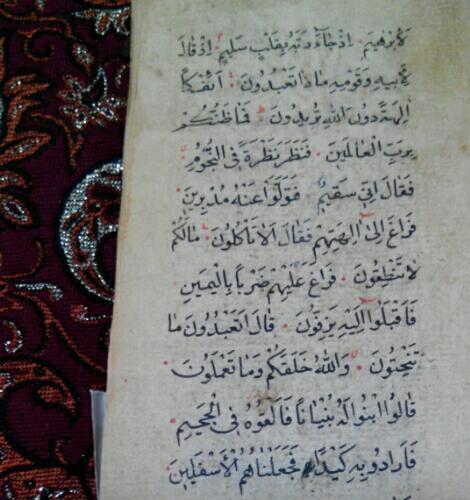 لَإِبْرٰهِيمَ ۰ اِذْ جَآءَ رَبَّهُ بِقَلْبٍ سَلِيمٍ ۰ اِذْ قَالَ
لِاَبِيهِ وَقَوْمِهِ مَاذَا تَعْبُدُونَ ۰ اَئِفْكًا
اٰلِهَةً دُونَ اللهِ تُرِيدُونَ ۰ فَمَا ظَنُّكُمْ
بِرَبِّ الْعَالَمِينَ ۰ فَنَظَرَ نَظْرَةً فِى النُّجُومِ ۰
فَقَالَ اِنِّى سَقِيمٌ ۰ فَتَوَلَّوْا عَنْهُ مُدْبِرِينَ ۰
فَرَاغَ اِلٰى اٰلِهَتِهِمْ فَقَالَ اَلَا تَأْكُلُونَ ۰ مَالَكُمْ
لَا تَنْطِقُونَ ۰ فَرَاغَ عَلَيْهِمْ ضَرْبًا بِالْيَمِينِ ۰
فَاَقْبَلُوا اِلَيْهِ يَزِفُّونَ ۰ قَالَ اَتَعْبُدُونَ مَا
تَنْحِتُونَ ۰ وَاللهُ خَلَقَكُمْ وَمَا تَعْمَلُونَ ۰
قَالُوا ابْنُوا لَهُ بُنْيَانًا فَاَلْقُوهُ فِى الْجَحِيمِ ۰
فَاَرَادُوا بِهِ كَيْدًا فَجَعَلْنَاهُمُ الْاَسْفَلِينَ ۰